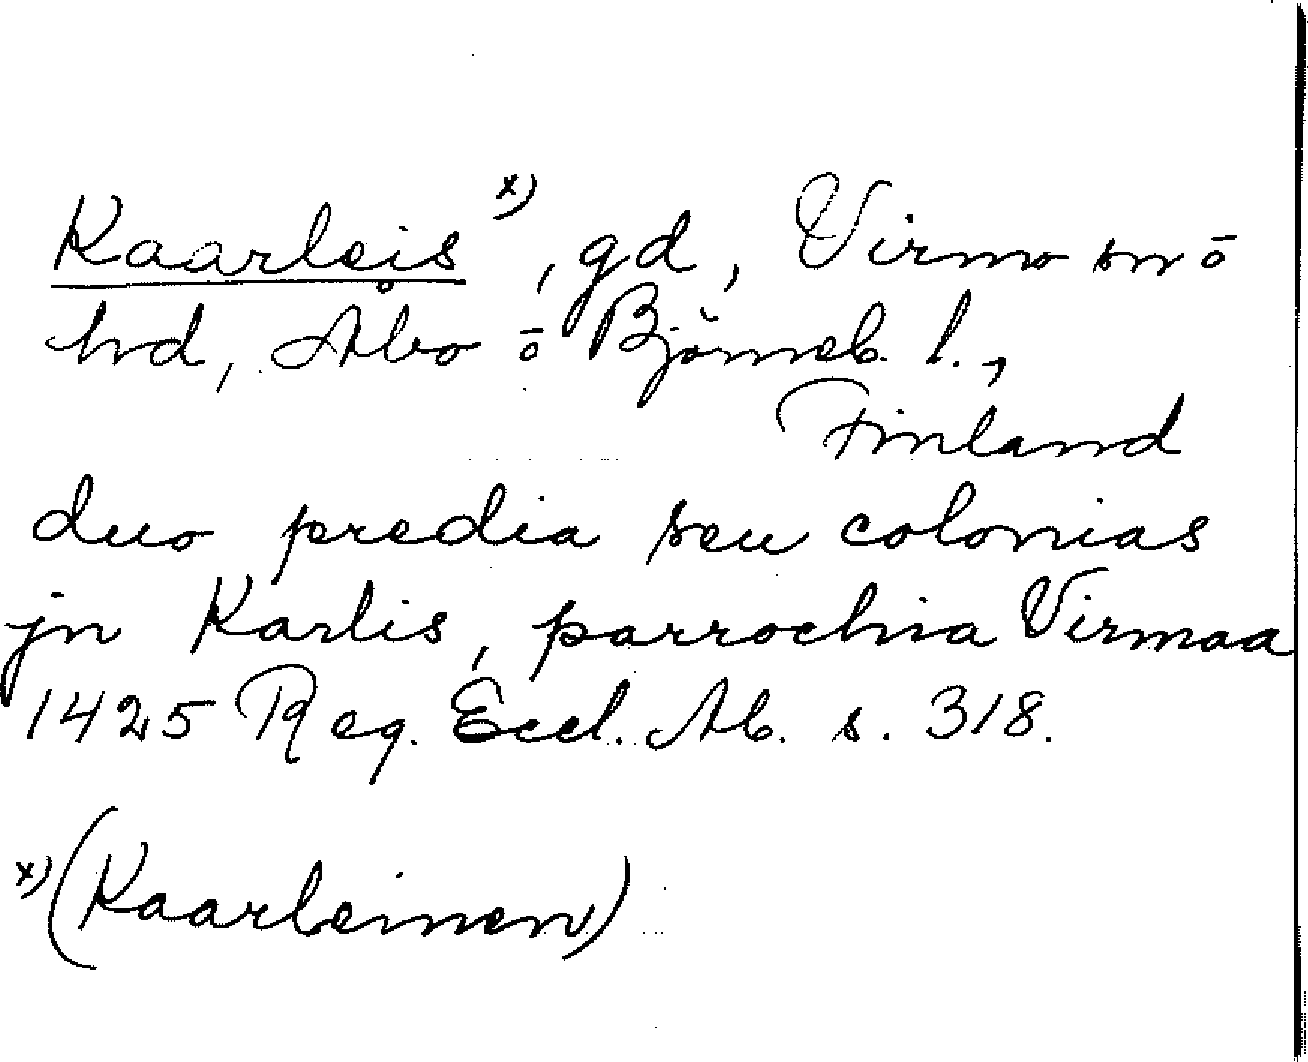 Kaarleis x), gd, Virmo sn ō
hd, Åbo ō Björneb. l.,
Finland
duo predia seu colonias
jn Karlis, parrochia Virmaa
1425 Reg. Eccl. Ab. s. 318.
x) (Kaarleinen)